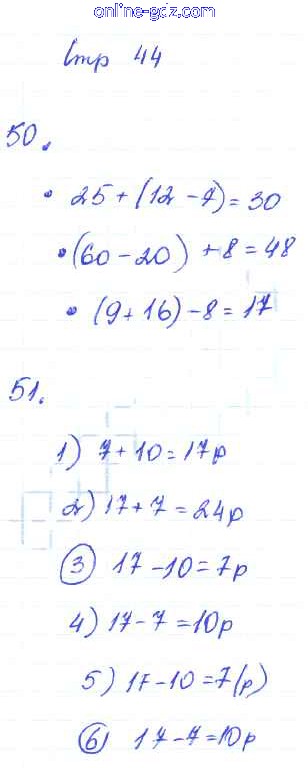 online-gdz.com
Стр 44
50.
• 25 + (12 - 7) = 30
• (60 - 20) + 8 = 48
• (9 + 16) - 8 = 17
51.
1) 7 + 10 = 17р
2) 17 + 7 = 24р
3 17 - 10 = 7р
4) 17 - 7 = 10р
5) 17 - 10 = 7(р)
6 17 - 7 = 10р